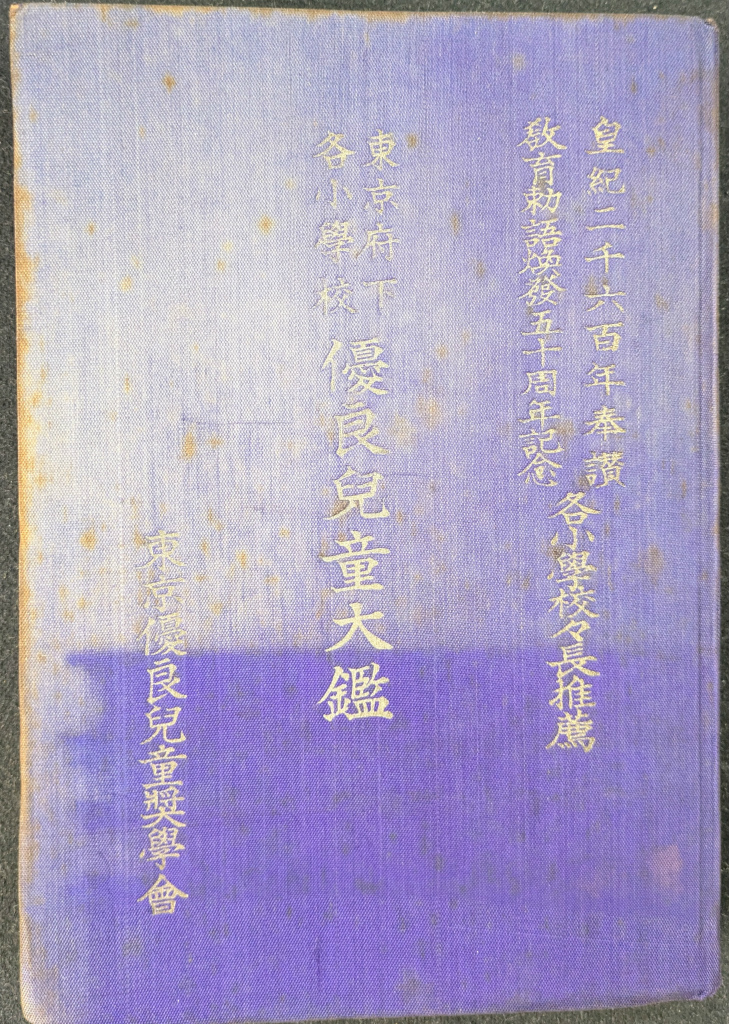 皇紀二千六百年奉讃
敎育勅語煥發五十周年記念
各小學校々長推薦
東京府下
各小學校
優良兒童大鑑
東京優良兒童奬學會